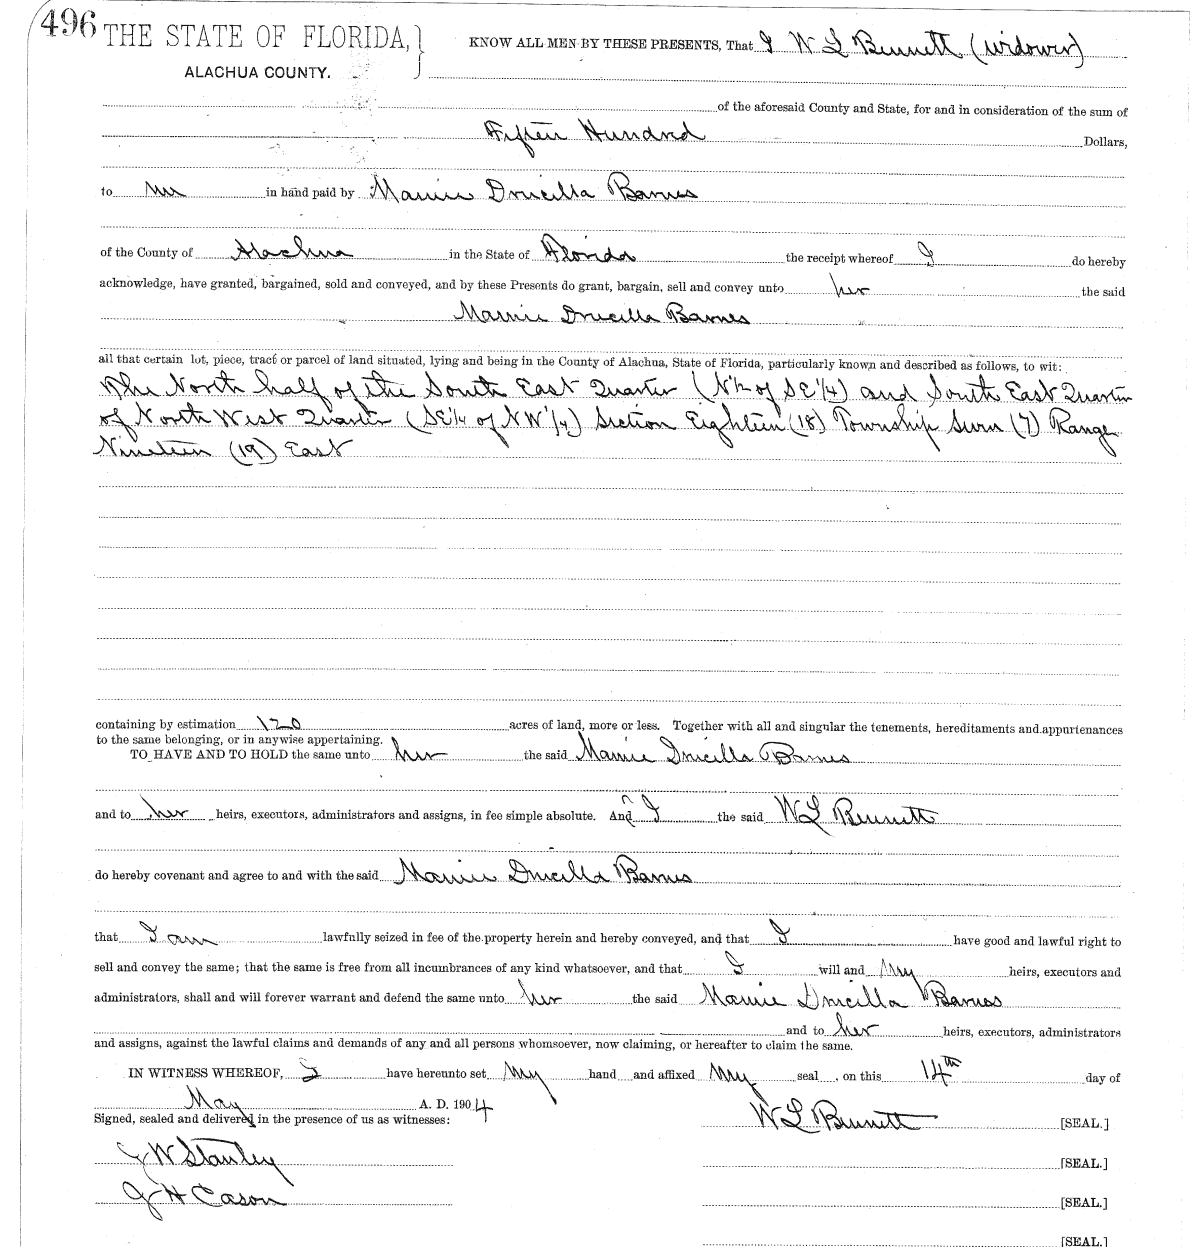 496
THE STATE OF FLORIDA, } KNOW ALL MEN BY THESE PRESENTS, That I W L Bennett (widower)
ALACHUA COUNTY.
of the aforesaid County and State, for and in consideration of the sum of
Fifteen Hundred Dollars,
to me in hand paid by Mamie Drucilla Barnes
of the County of Alachua in the State of Florida the receipt whereof I do hereby
acknowledge, have granted, bargained, sold and conveyed, and by these Presents do grant, bargain, sell and convey unto her the said
Mamie Drucilla Barnes
all that certain lot, piece, tract or parcel of land situated, lying and being in the County of Alachua, State of Florida, particularly known and described as follows, to wit:
The North half of the South East Quarter (N½ of SE¼) and South East Quarter
of North West Quarter (SE¼ of NW¼) Section Eighteen (18) Township Seven (7) Range
Nineteen (19) East
containing by estimation 120 acres of land, more or less. Together with all and singular the tenements, hereditaments and appurtenances
to the same belonging, or in anywise appertaining.
TO HAVE AND TO HOLD the same unto her the said Mamie Drucilla Barnes
and to her heirs, executors, administrators and assigns, in fee simple absolute. And I the said W L Bennett
do hereby covenant and agree to and with the said Mamie Drucilla Barnes
that I am lawfully seized in fee of the property herein and hereby conveyed, and that I have good and lawful right to
sell and convey the same; that the same is free from all incumbrances of any kind whatsoever, and that I will and my heirs, executors and
administrators, shall and will forever warrant and defend the same unto her the said Mamie Drucilla Barnes
and to her heirs, executors, administrators
and assigns, against the lawful claims and demands of any and all persons whomsoever, now claiming, or hereafter to claim the same.
IN WITNESS WHEREOF, I have hereunto set my hand and affixed my seal, on this 14th day of
May A. D. 1904
Signed, sealed and delivered in the presence of us as witnesses: W L Bennett [SEAL.]
J W Stanley [SEAL.]
J H Cason [SEAL.]
[SEAL.]